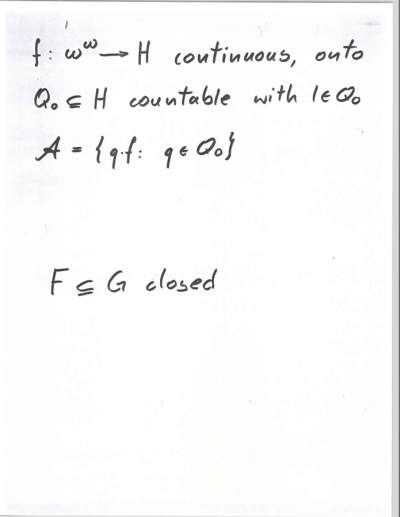 f: ω^ω → H continuous, onto
Q₀ ⊆ H countable with 1 ∈ Q₀
𝒜 = {q·f: q ∈ Q₀}
F ⊆ G closed